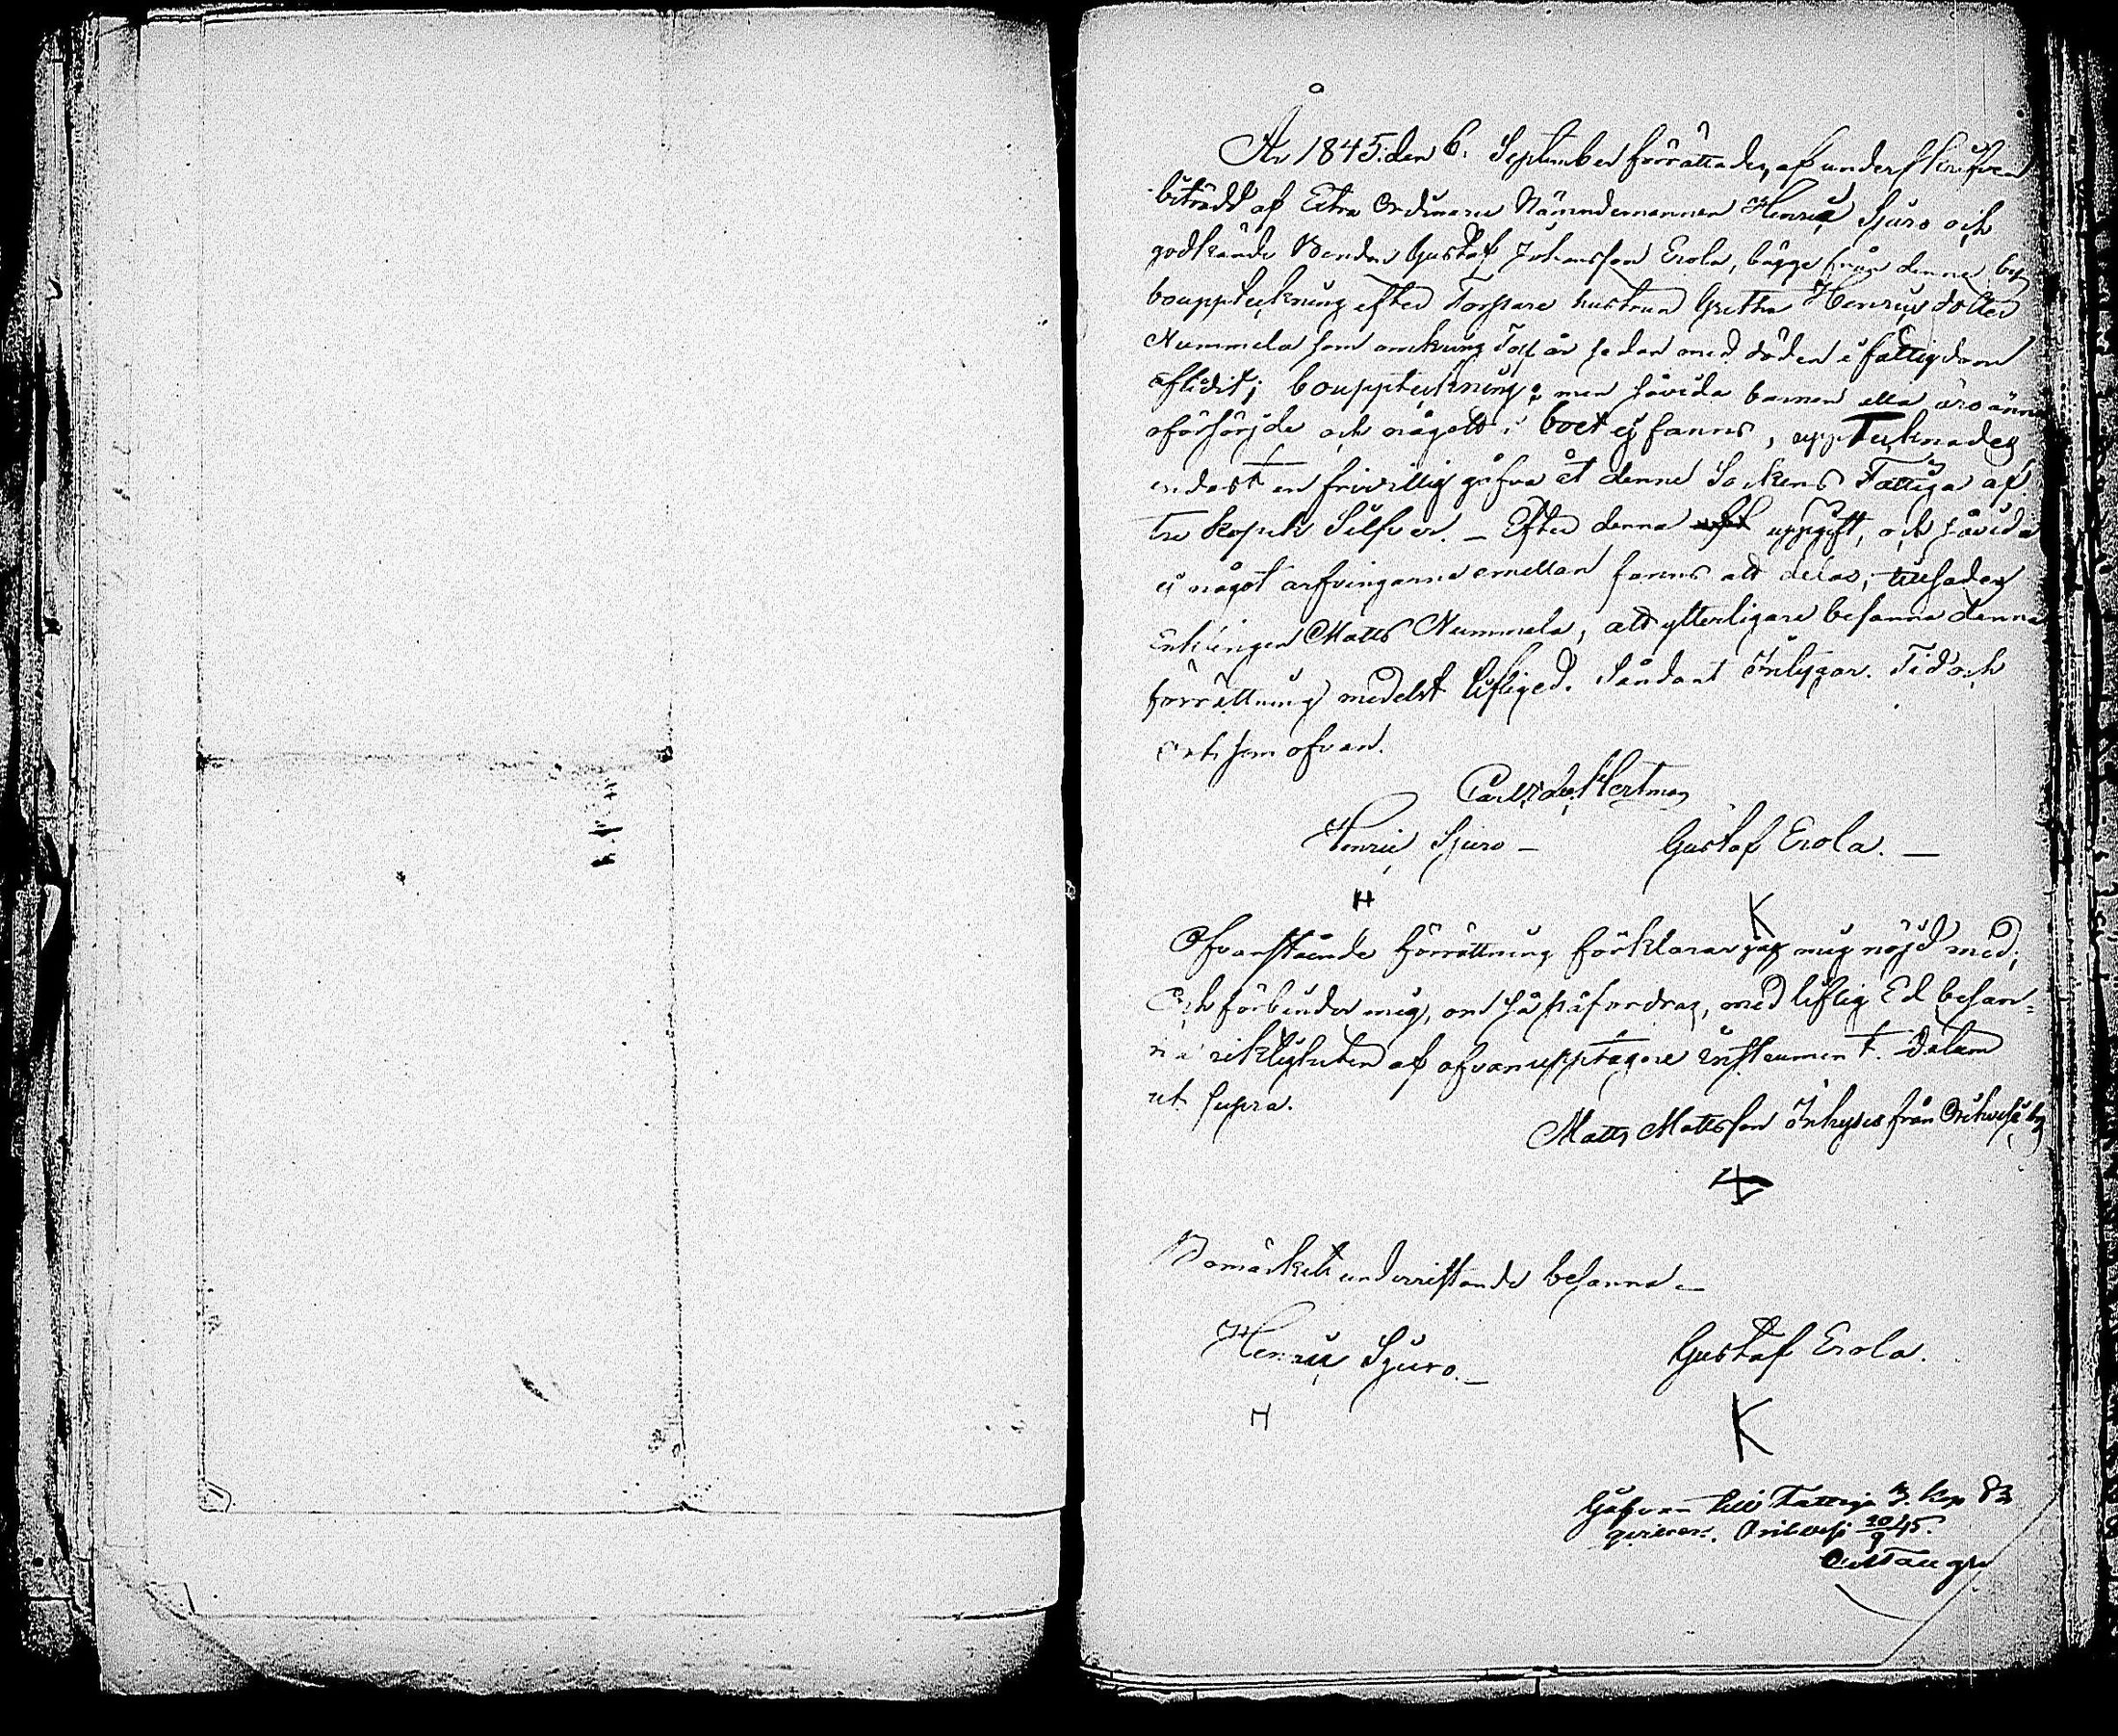 År 1845. den 6. September förrättades, af underskrifven
biträdd af Extra Ordinarie Nämndemannen Henric Sjuro och
godkände Bonden Gustaf Johansson Erola, bägge från denne by
bouppteckning efter Torpare hustrun Gretha Henrics dotter
Nummela som omkring Tolf år sedan med döden i fattigdom
aflidit; bouppteckning; men såvida barnen alla äro ännu
oförsörjde och något i boet ej fanns, upptecknades
endast en frivillig gåfva åt denne Sockens Fattiga af
tre kopek Silfver. – Efter denna uppgift, och såvida
ej något arfvingarne emellan fanns att delas, tillsades
Enklingen Matts Nummela, att ytterligare besanna denna
förrättning medelst liflig ed. Sådant intygar. Tid och
ort som ofvan.
Carl Hertman
Henric Sjuro – Gustaf Erola. –
H K
Ofvanstående förrättning förklarar jag mig nöjd med,
och förbinder mig, om så påfordras, med liflig Ed besan-
na riktigheten af ofvanupptagne instrument. Datum
ut supra.
Matts Mattsson från Orihvesi by
Bomärkets underristande besanna –
Henric Sjuro. – Gustaf Erola.
H K
Gåfvan till Fattige 3. kop Sr
qvitteras. Orihvesi 20/9 45.